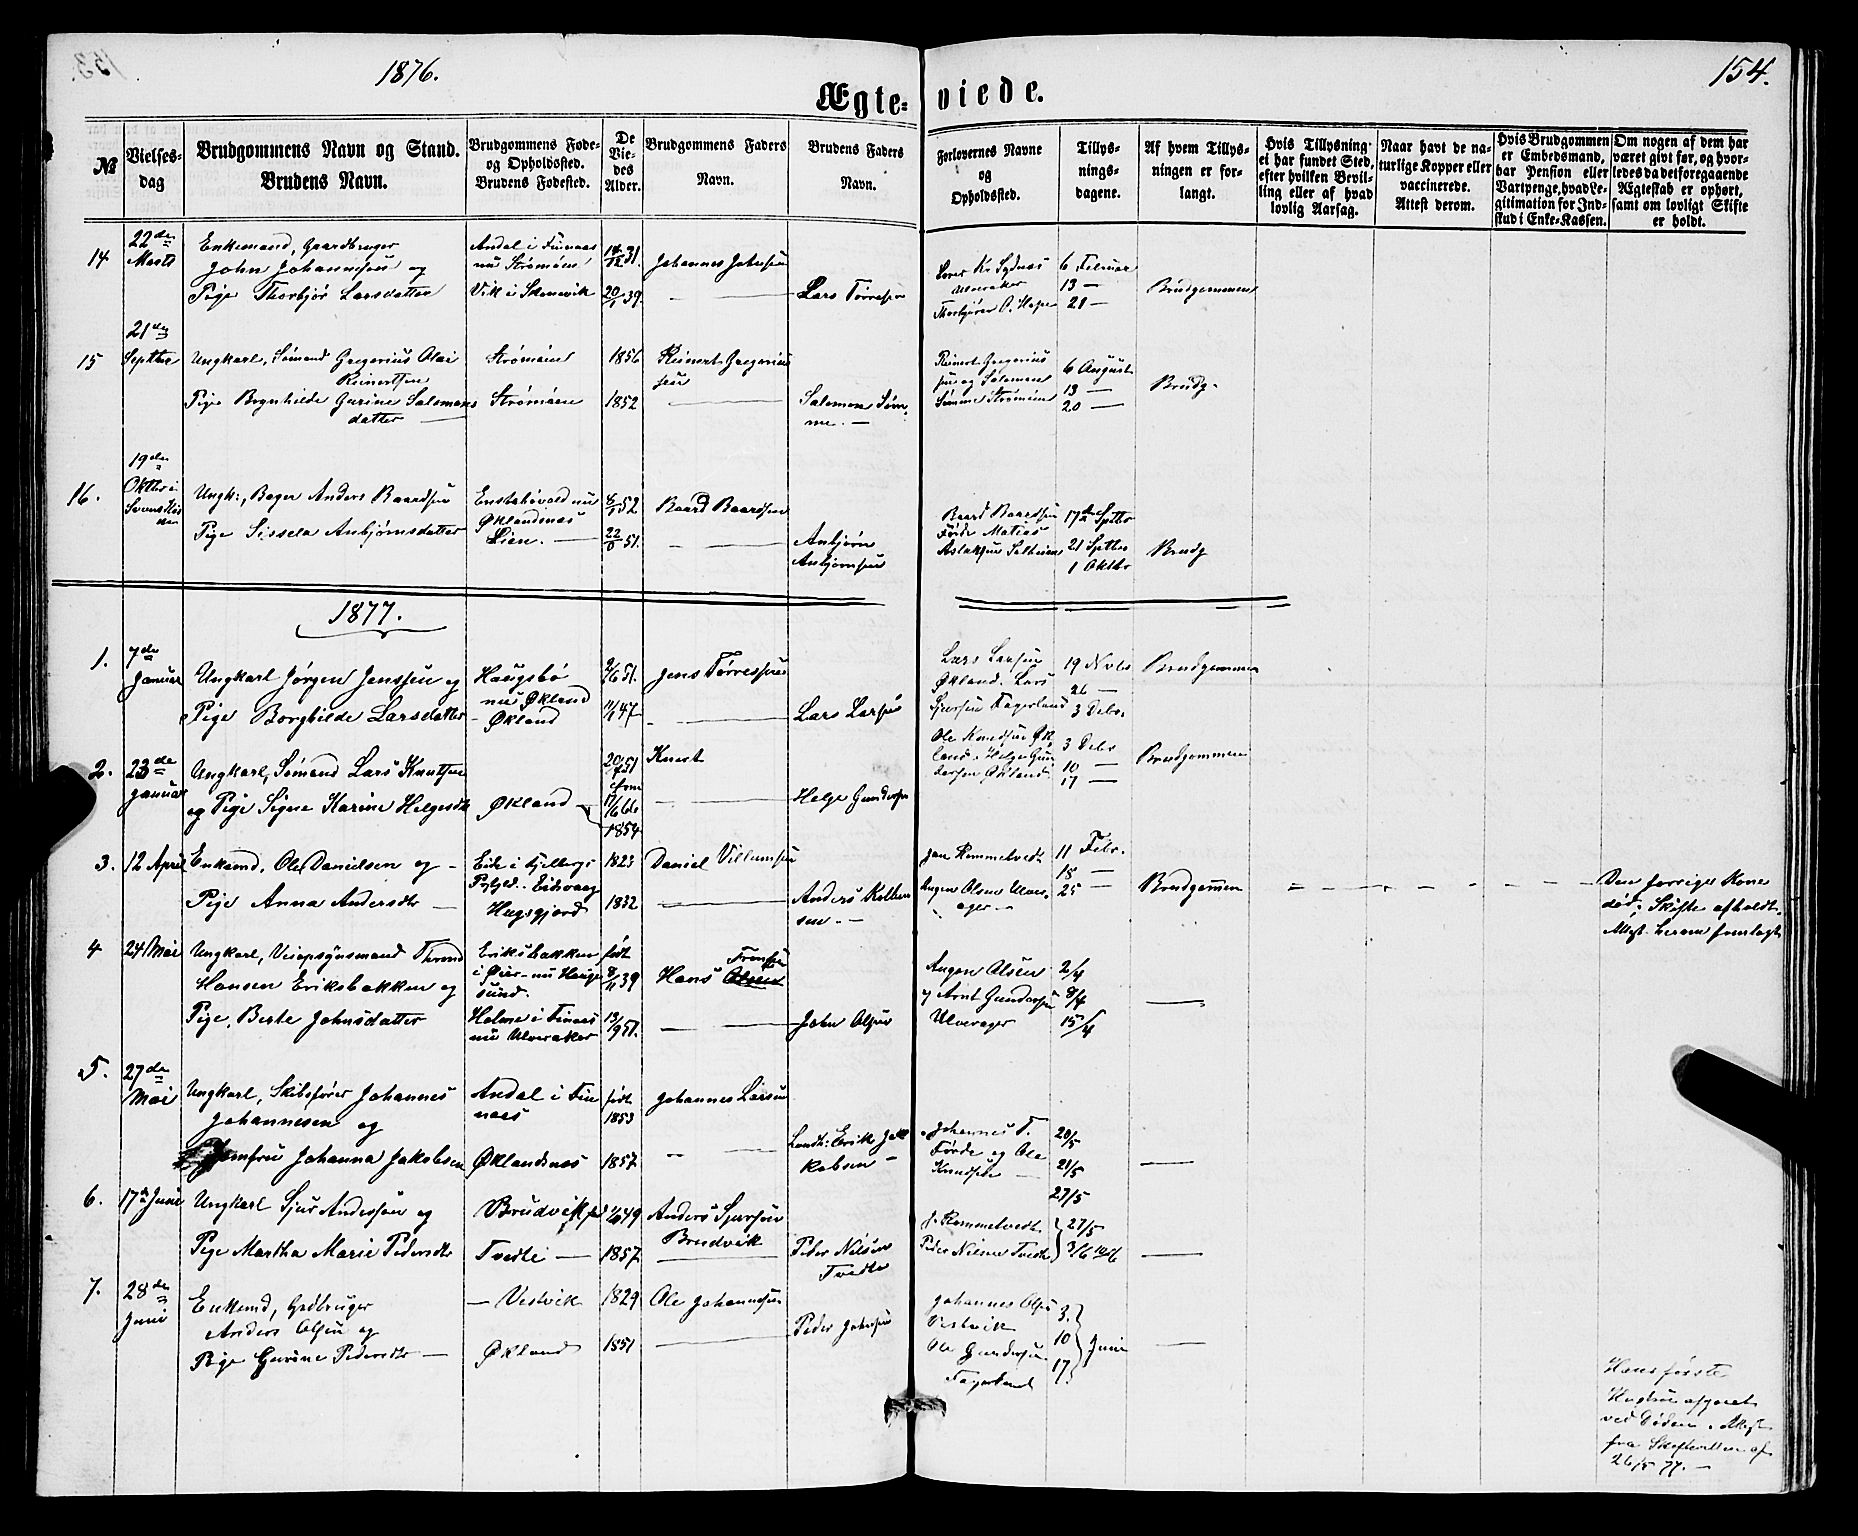 1876.
154.
Ægte- viede.
№
Vielses-
dag
Brudgommens Navn og Stand.
Brudens Navn.
Brudgommens Føde-
og Opholdssted.
Brudens Fødested.
De
Vie-
des
Alder.
Brudgommens Faders
Navn.
Brudens Faders
Navn.
Forlovernes Navne
og
Opholdssted.
Tillys-
nings-
dagene.
Af hvem Tillys-
ningen er for-
langt.
Hvis Tillysning
ei har fundet Sted,
efter hvilken Bevil-
ling eller af hvad
lovlig Aarsag.
Naar havt de na-
turlige Kopper eller
vaccinerede.
Attest derom.
Hvis Brudgommen
er Embedsmand,
har Pension eller
Vartpenge, hvad Le-
gitimation for Ind-
skud i Enke-Kassen.
Om nogen af dem har
været givt før, og hvor-
ledes da det foregaaende
Ægteskab er ophørt,
samt om lovligt Skifte
er holdt.
14
22de
Marts
Enkemand, Gaardbruger
John Johannesen og
Pige Thorbjør Larsdatter
Andal i Finnaas
nu Strømøen
Vik i Skonevik
14/12 31.
20/1 39.
Johannes Johnsen
Lars Tørresen
6 Februar
13 —
21 —
Brudgommen
15
21de
Septbr
Ungkarl, Sømand Gregorius Olai
Reinertsen
Pige Brynhilde Gurine Salomons
datter —
Strømøen
Strømøen
1856
1852
Reinert Gregorius
sen
Salomon Søm-
me. —
Reinert Gregorius
sen og Salomon
Sømme Strømøen
6 August
13 —
20 —
Brudg.
16.
19de
Oktbr i
Ungk:, Bager Anders Baardsen
Pige Sissela Anbjørnsdatter
Øklandsnæs
Lien. —
8/1 52
51.
Baard Baardsen
Anbjørn
Anbjørnsen
Baard Baardsen
Førde Matias
Aslaksen
17de Septbr
21 Septbr
1 Oktbr
Brudg
1877.
1.
7de
Januar
Ungkarl Jørgen Jenssen og
Pige Borghilde Larsdatter
Haugsbø
nu Økland
Økland
2/6 51.
11/1 47
Jens Tørressen
Lars Larsen
Lars Larsen
Økland. Lars
Sjursen Fagerland
19 Novbr
26 —
3 Debr.
Brudgommen
2.
23de
Januar
Ungkarl, Sømand Lars Knutsen
og Pige Signe Karine Helgesdtr
Økland —
1854
Knut
Helge Gundersen
Ole Knudsen Øk
land. Helge Gun
dersen Økland.
3 Debr
10 —
17 —
Brudgommen
3.
12 April
Enkemd. Ole Danielsen og —
Pige Anna Andersdtr —
1823
1832
Daniel Villumsen
Anders
sen. —
Jan Rommetvedt
Augen Olsen Ulver-
ager. —
11 Febr.
18 —
25 —
Brudgommen
Den forrige Kone
død; Skifte afholdt.
Attest herom fremlagt
4
24 Mai
Ungkarl, Trond
Hansen Eriksbakken og
Pige, Berte Johnsdatter
Eriksbakken
i Øier nu Hauge
sund.
Holme i Finaas
nu Ulveraker
født
8/11 39
13/9 51.
Hans Olsen
John Olsen
Augen Olsen
og Arnt Gundersen
Ulverager
2/4
8/4
15/4
5.
27de
Mai
Ungkarl, Skibsfører Johannes
Johannesen og
Jomfru Johanna Jakobsen
Andal i Fin
naas
Øklandsnæs
født
1853
1857
Johannes Larsen
Landh: Erik Ja
kobsen —
Johannes T.
Førde og Ole
Knudsen —
20/5
21/5
27/5
6.
17de Juni
Ungkarl Sjur Andersen og
Pige Martha Marie Pedersdtr
Brudvik
Tvedte —
49
1857
Anders Sjursen
Brudvik
Peder Nilsen
Tvedte
J. Rommetvedt
Peder Nilsen Tvedte
27/5
3/6 10/6
7.
28de
Juni
Enkemd, Grdbruger
Anders Olsen og
Pige Gurine Pedersdtr —
— Vestvik
Økland
1829
1851
Ole Johannesen
Peder Johnsen
Johannes Olsen
Vestvik
Ole Gundersen
Fagerland
3.
10
17.
Juni
Hans første
Hustru afgaaet
ved Døden. Attest
fra Skifteretten af
26/5 77. —